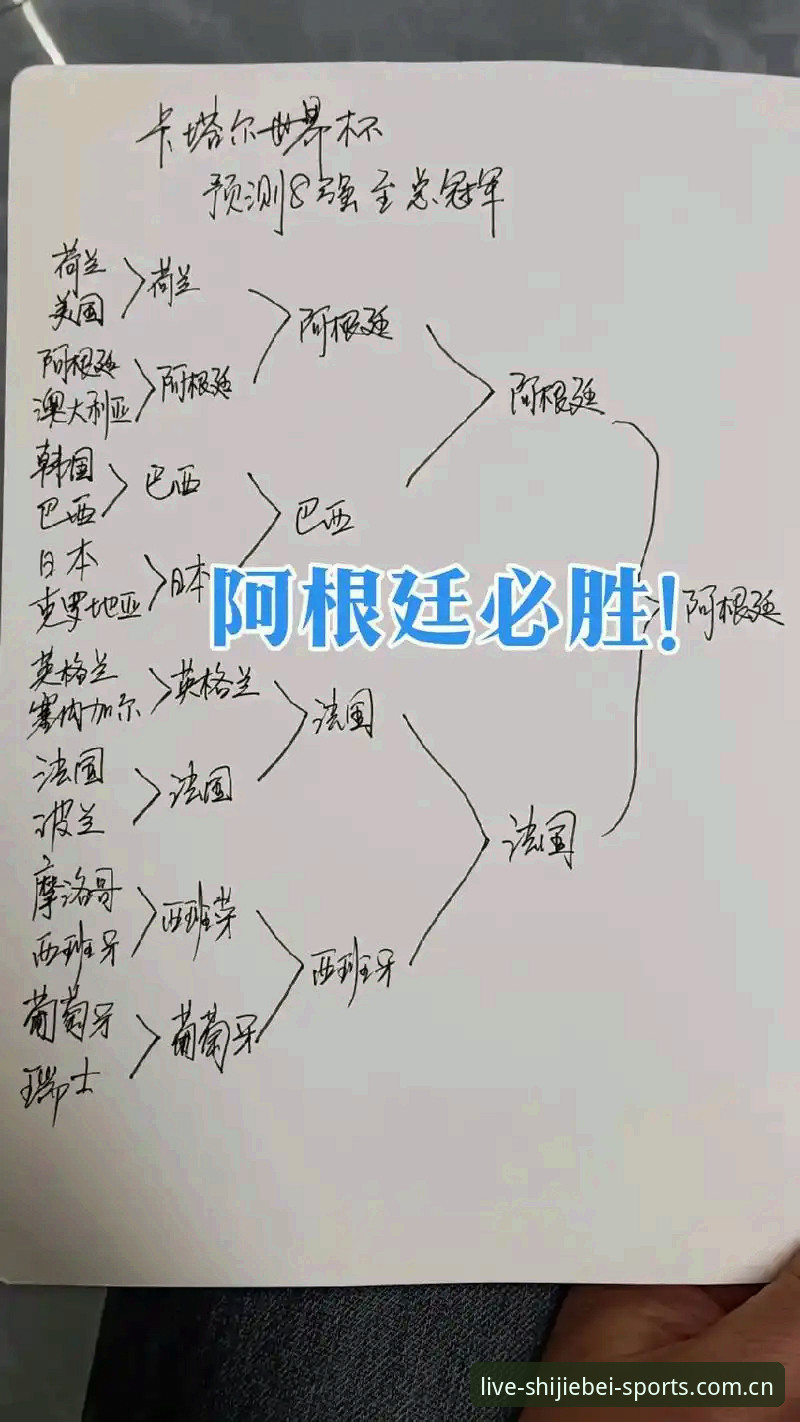 卡塔尔世界杯
预测8强至总冠军
荷兰
美国
荷兰
阿根廷
澳大利亚
阿根廷
阿根廷
韩国
巴西
巴西
日本
克罗地亚
日本
巴西
阿根廷
英格兰
塞内加尔
英格兰
法国
波兰
法国
法国
摩洛哥
西班牙
西班牙
葡萄牙
瑞士
葡萄牙
西班牙
法国
阿根廷
阿根廷必胜!
live-shijiebei-sports.com.cn